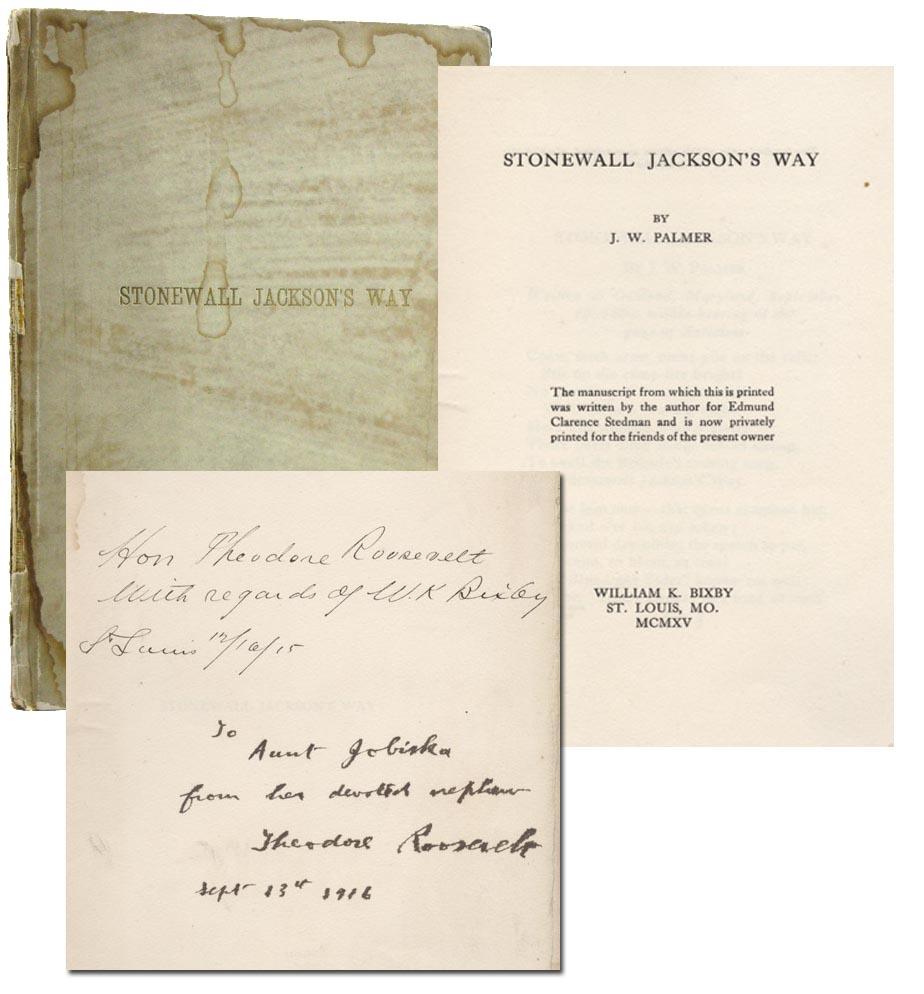 STONEWALL JACKSON'S WAY
STONEWALL JACKSON'S WAY
BY
J. W. PALMER
The manuscript from which this is printed
was written by the author for Edmund
Clarence Stedman and is now privately
printed for the friends of the present owner
WILLIAM K. BIXBY
ST. LOUIS, MO.
MCMXV
Hon Theodore Roosevelt
With regards of W. K Bixby
St Louis 12/10/15
STONEWALL JACKSON'S WAY
To
Aunt Jobiska
from her devoted nephew
Theodore Roosevelt
Sept 13th 1916